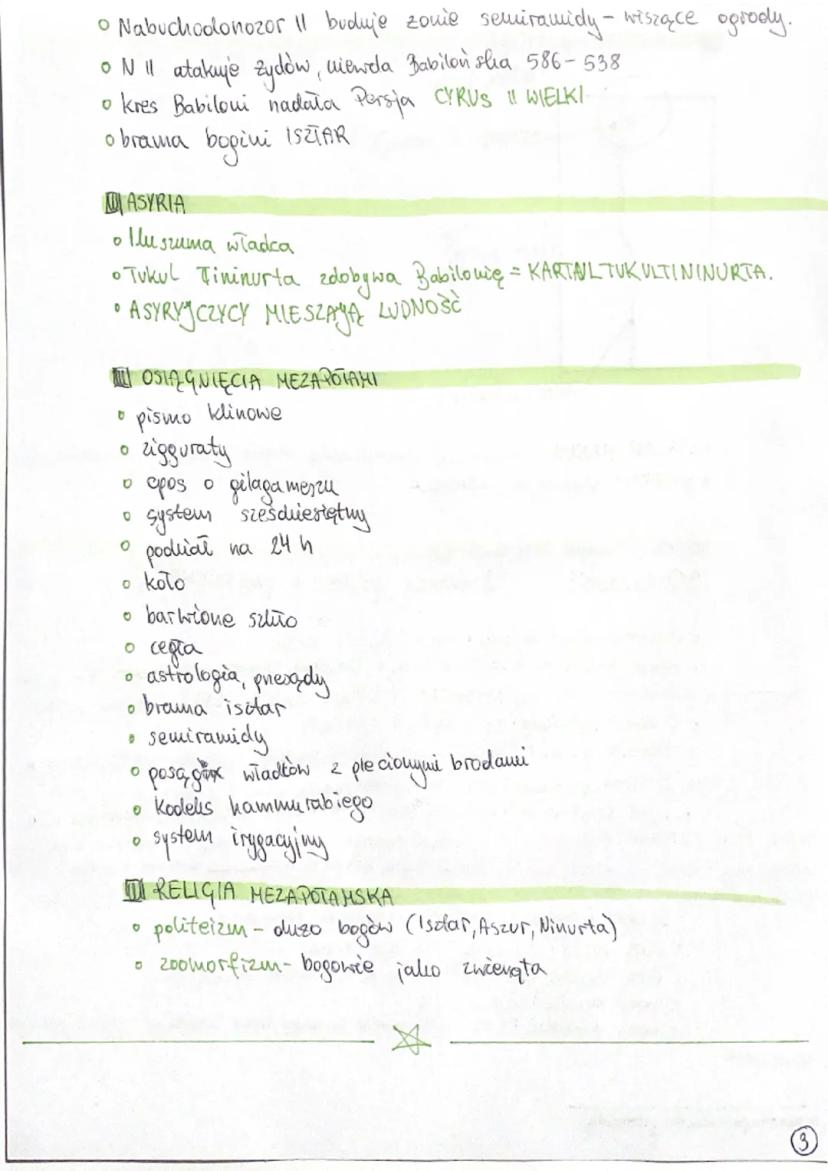 Nabuchodonozor II buduje żonie semiramidy - wiszące ogrody.
N II atakuje żydów, niewola Babilońska 586-538
kres Babiloni nadała Persja CYRUS II WIELKI
brama bogini ISZTAR
ASYRIA
Iluszuma władca
Tukul Tininurta zdobywa Babilonię = KARTAILTUKULTININURTA.
ASYRYJCZYCY MIESZAJĄ LUDNOŚĆ
OSIĄGNIĘCIA MEZAPOTAMI
pismo klinowe
zigguraty
epos o gilagameszu
system sześdziesiętny
podział na 24 h
koło
barwione szkło
cegła
astrologia, przesądy
brama isztar
semiramidy
posągi władców z plecionymi brodami
kodeks hammurabiego
system irygacyjny
RELIGIA MEZAPOTAMSKA
politeizm - dużo bogów (Isztar, Aszur, Ninurta)
zoomorfizm - bogowie jako zwierzęta
3